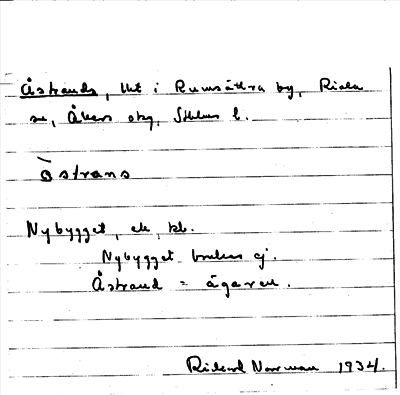 Åstrands, lht i Rumsättra by, Riala
sn, Åkers skg, Sthlms l.
òstrans
Nybygget, ek, kb.
Nybygget brukas ej.
Åstrand = ägaren.
Rickard Norrman 1934.